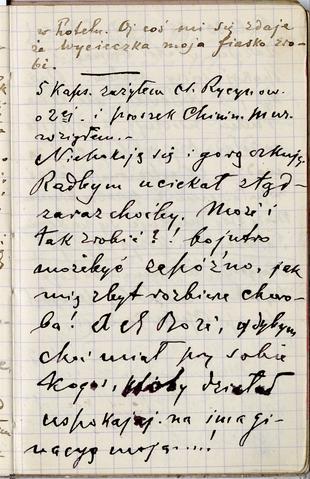 w hotelu. Oj coś mi się zdaje
że wycieczka moja fiasko zro-
bi.
5 Kaps. zażyłem ol. Rycynow.
o 2ej. i proszek Chinin. mur.
wziąłem.-
Niepokoję się i gorączkuję.
Radbym uciekał ztąd-
zaraz choćby. Może i
tak zrobić?! bo jutro
możebyć zapóźno, jak
mię zbyt rozbierze choro-
ba! Ach Boże, gdybym
choć miał przy sobie
kogoś, któby działał
uspokajaj. na imagi-
nacyę moją....!